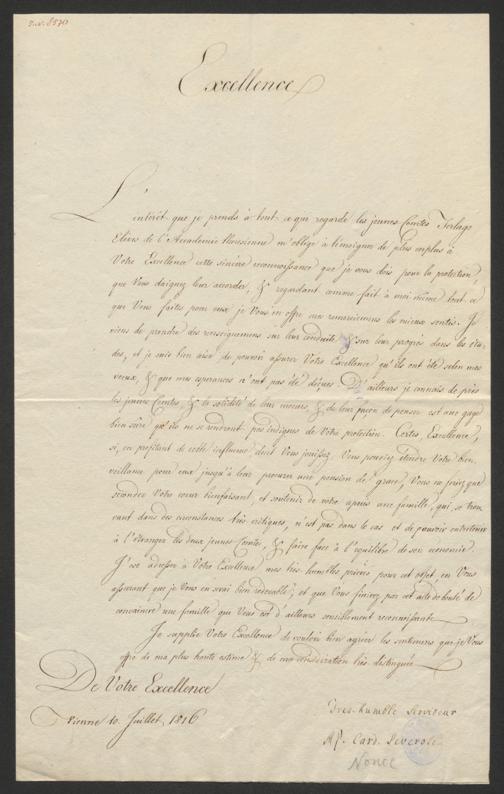 Excellence
L'intérêt que je prends à tout ce qui regarde les jeunes Comtes Terlago
Elèves de l'Accademie Theresienne m'oblige à témoigner de plus en plus à
Votre Excellence cette sincère reconnoissance que je vous dois pour la protection,
que Vous daignez leur accorder, & regardant comme fait à moi même tout ce
que Vous faites pour eux je Vous en offre mes remercimens les mieux sentis. Je
viens de prendre des renseignemens sur leur conduite, & sur leur progres dans les étu-
des, et je suis bien aise de pouvoir assurer Votre Excellence qu'ils ont été selon mes
voeux, & que mes esperances n'ont pas été déçues. D'ailleurs je connais de près
les jeunes Comtes & la solidité de leur moeurs, & de leur façon de penser est une gage
bien sûre qu'ils ne se rendront pas indignes de Votre protection. Certes, Excellence,
si, en profitant de cette influence dont Vous jouissez, Vous pouviez étendre Votre bien-
veillance pour eux jusqu'à leur procurer une pension de grace, Vous ne feriez que
seconder Votre coeur bienfaisant, et soutenir de votre appui une famille, qui, se trou-
vant dans des circonstances très critiques, n'est pas dans le cas et de pouvoir entretenir
à l'étranger les deux jeunes Comtes, & faire face à l'equilibre de son economie.
J'ose adresser à Votre Excellence mes très humbles prières pour cet objet, en Vous
assurant que je Vous en serai bien redevable, et que Vous finirez par cet acte de bonté de
convaincre une famille que Vous est d'ailleurs sensiblement reconnaissante.
Je supplie Votre Excellence de vouloir bien agréer les sentimens que je Vous
offre de ma plus haute estime & de ma considération très distinguée
De Votre Excellence
Vienne 10 Juillet 1816
Tres-humble Serviteur
Card. Severoli
Nonce